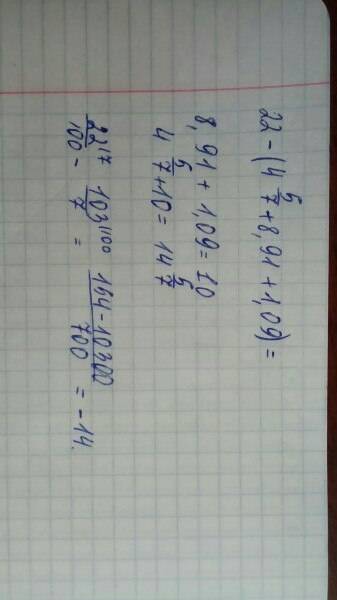 22 - (4 5/7 + 8,91 + 1,09) =
8,91 + 1,09 = 10
4 5/7 + 10 = 14 5/7
22\7/100 - 103\100/7 = 154 - 10300/700 = -14.